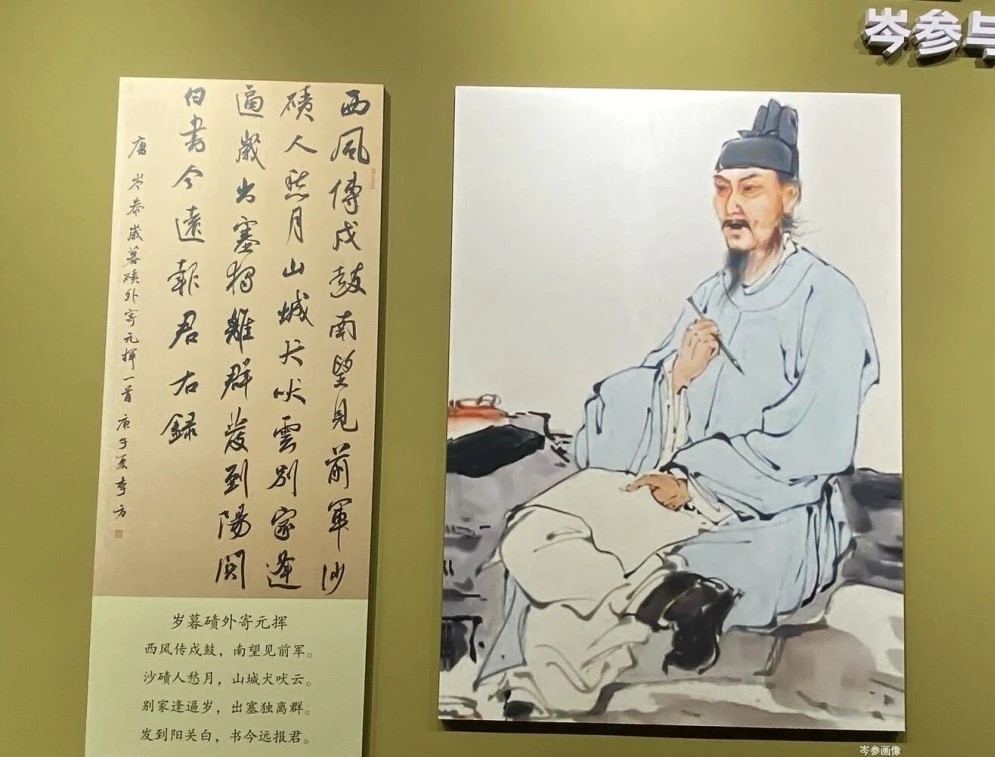 岑参与
西風傳戍鼓南望見前軍沙
磧人愁月山城犬吠雲別家逢
逼歲出塞獨離群發到陽関
白書今遠報君右録
唐岑參歲暮磧外寄元揮一首庚子夏李方
岁暮碛外寄元挥
西风传戍鼓，南望见前军。
沙碛人愁月，山城犬吠云。
别家逢逼岁，出塞独离群。
发到阳关白，书今远报君。
岑参画像